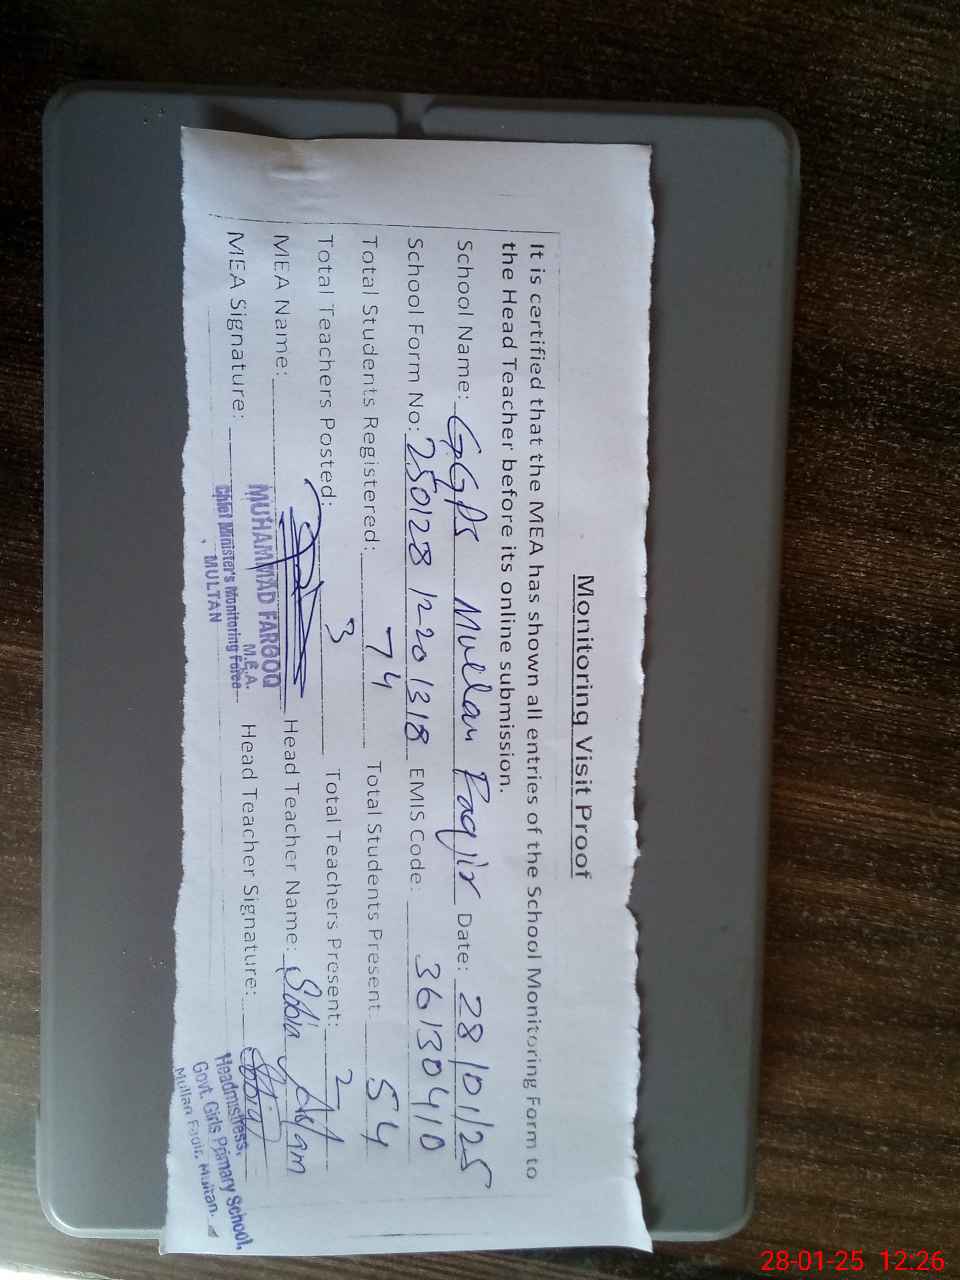 Monitoring Visit Proof
It is certified that the MEA has shown all entries of the School Monitoring Form to
the Head Teacher before its online submission.
School Name: GGPS Mullan Faqir Date: 28/01/25
School Form No: 250128 1220 1318 EMIS Code: 36130410
Total Students Registered: 74 Total Students Present 54
Total Teachers Posted: 3 Total Teachers Present: 2
MEA Name: Head Teacher Name: Sobia Aslam
MEA Signature: Head Teacher Signature: Sobia
MUHAMMAD FAROOQ
M.E.A.
Chief Minister's Monitoring Force
MULTAN
Headmistress,
Govt. Girls Primary School,
Mullan Faqir, Multan.
28-01-25 12:26